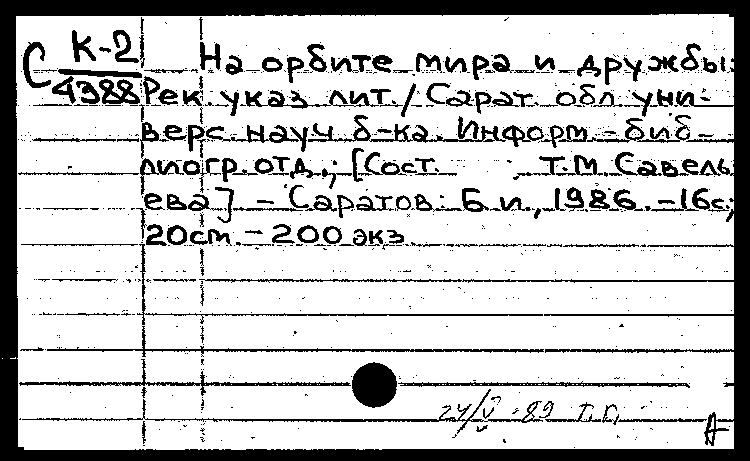 С К-2
4388
На орбите мира и дружбы:
Рек. указ. лит. / Сарат. обл. уни-
верс. науч. б-ка. Информ.-биб-
лиогр. отд.; [Сост. Т.М. Савель-
ева] - Саратов: Б.и., 1986. - 16с;
20см. - 200 экз.
24/V-89 Т.Г.